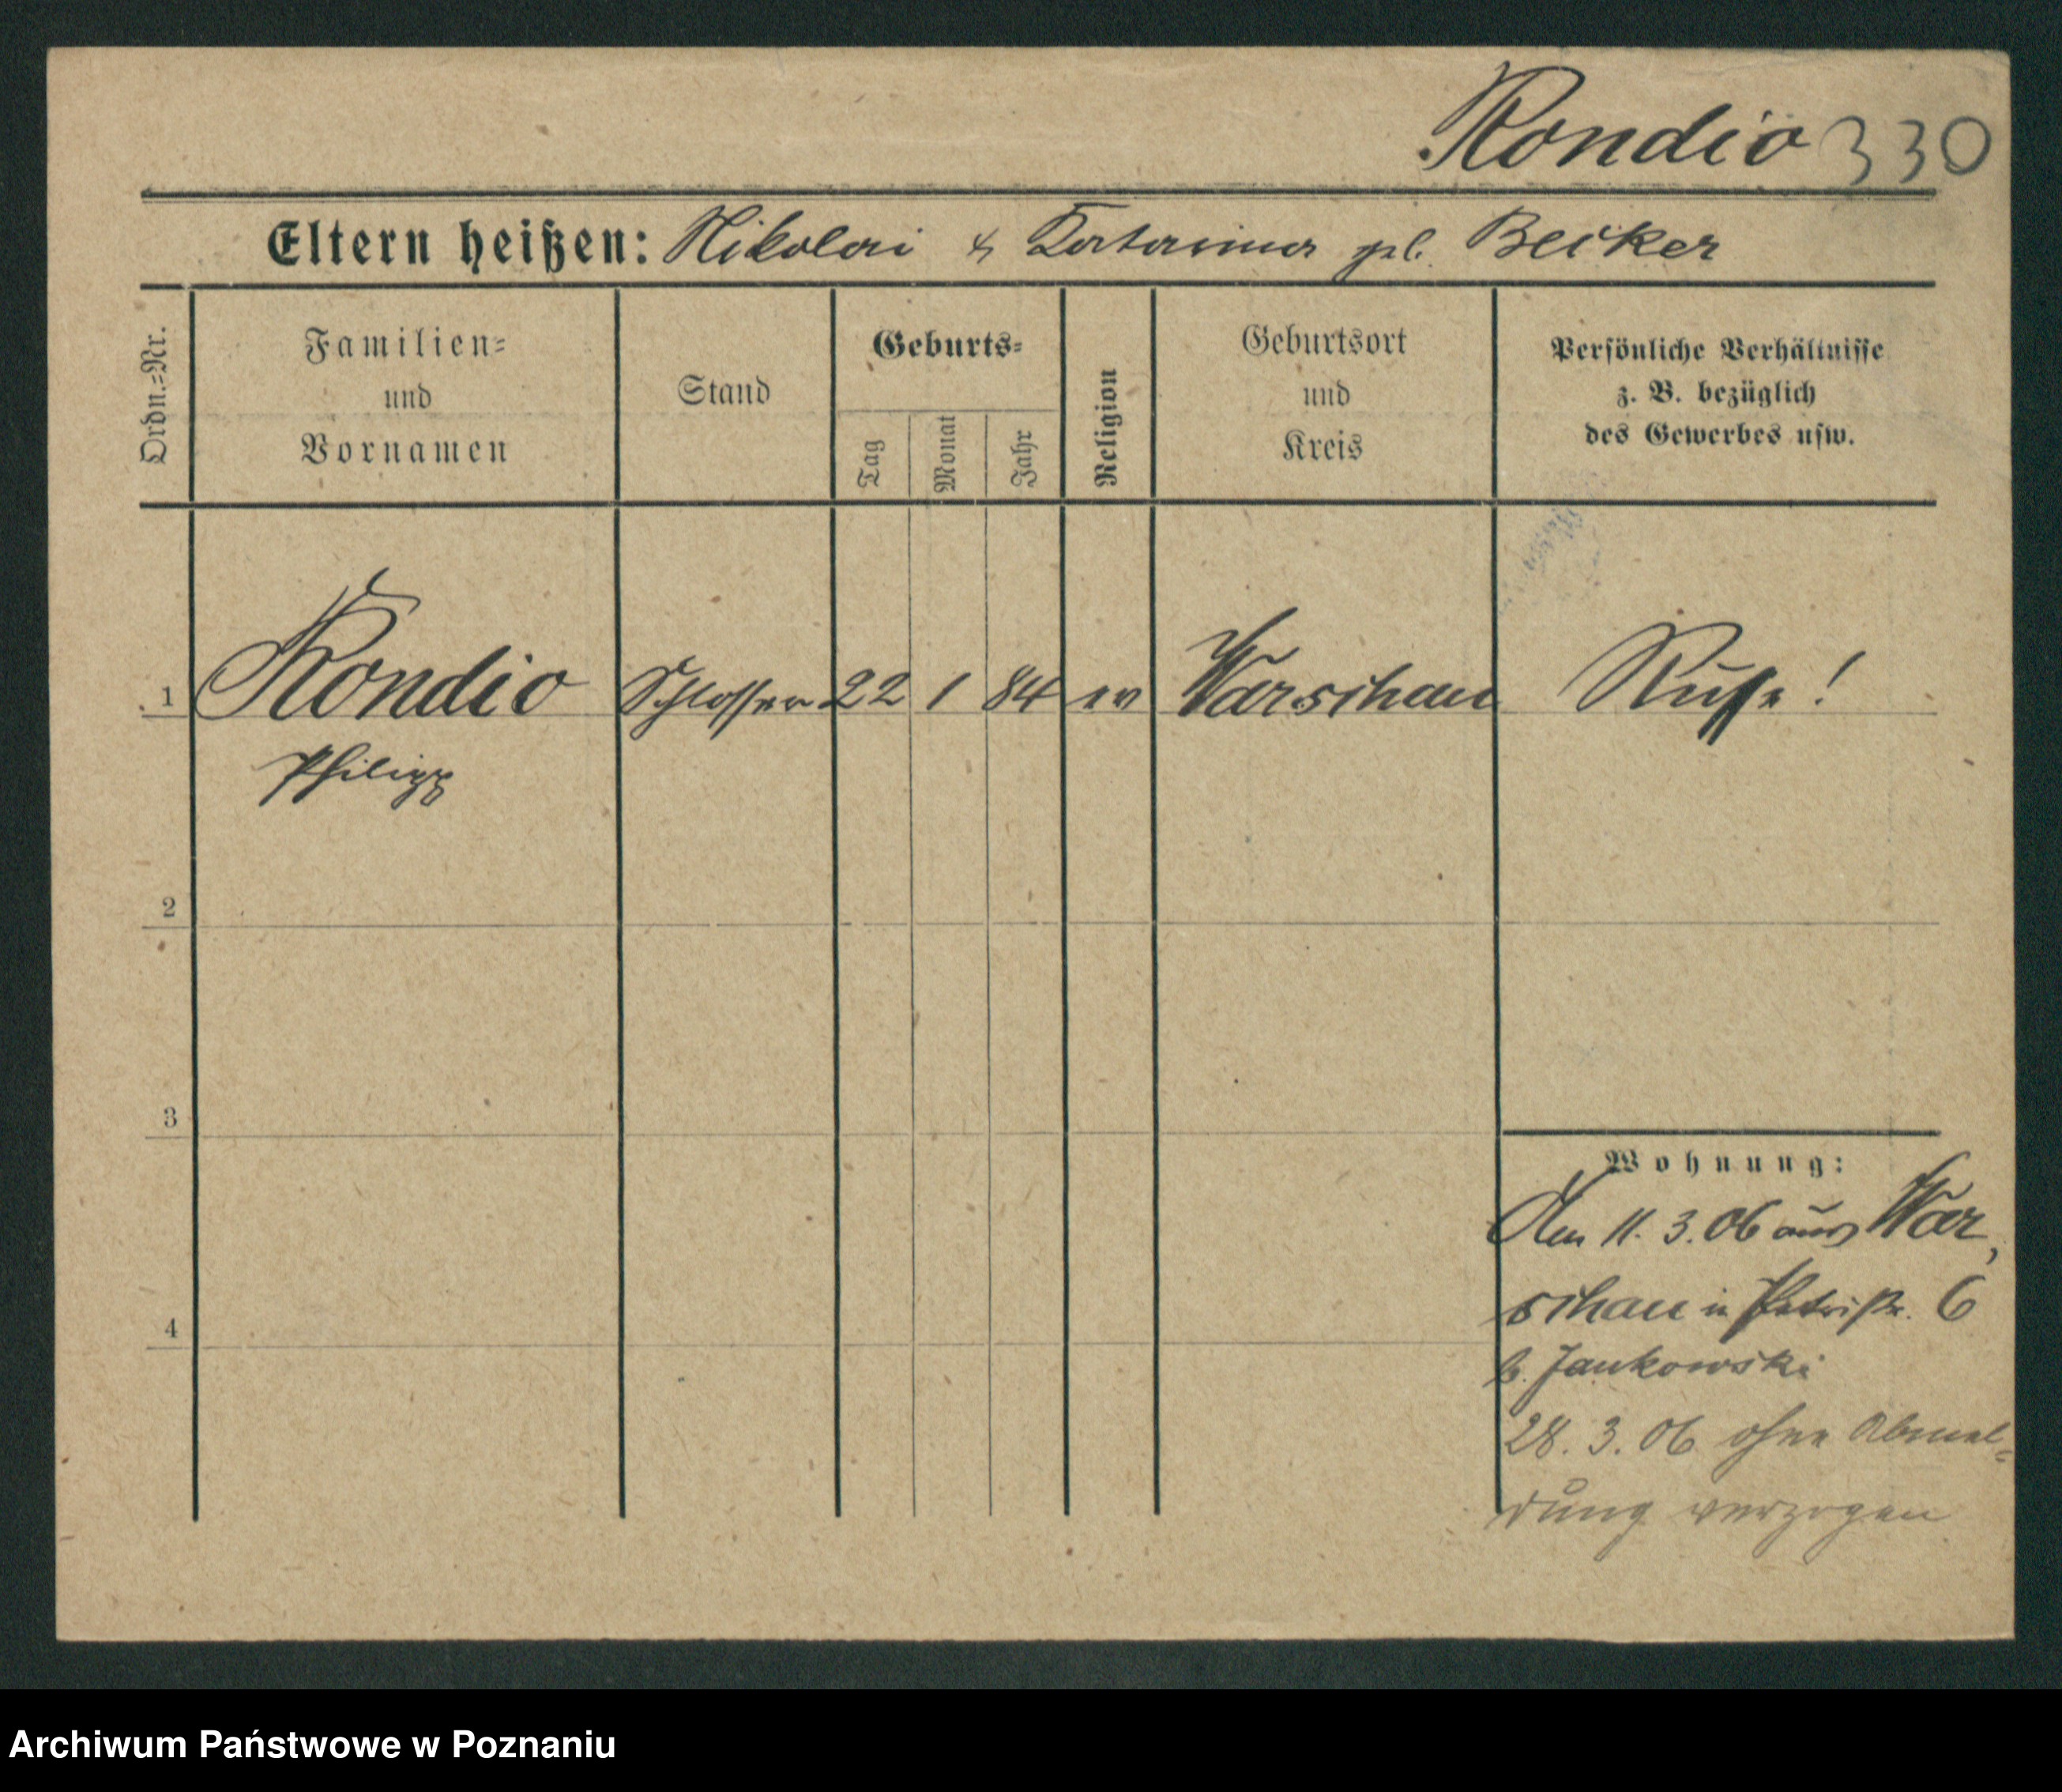 Rondio 330
Eltern heißen: Nikolai & Katarina geb. Becker
Ordn.=Nr.
Familien=
und
Vornamen
Stand
Geburts=
Tag
Monat
Jahr
Religion
Geburtsort
und
Kreis
Persönliche Verhältnisse
z. B. bezüglich
des Gewerbes usw.
1 Rondio Schlosser 22 1 84 ev Warschau Russe!
Philipp
2
3
4
Wohnung:
Am 11. 3. 06 aus War,
schau in Petristr. 6
b. Jankowski
28. 3. 06 ohne Abmel=
dung verzogen
Archiwum Państwowe w Poznaniu